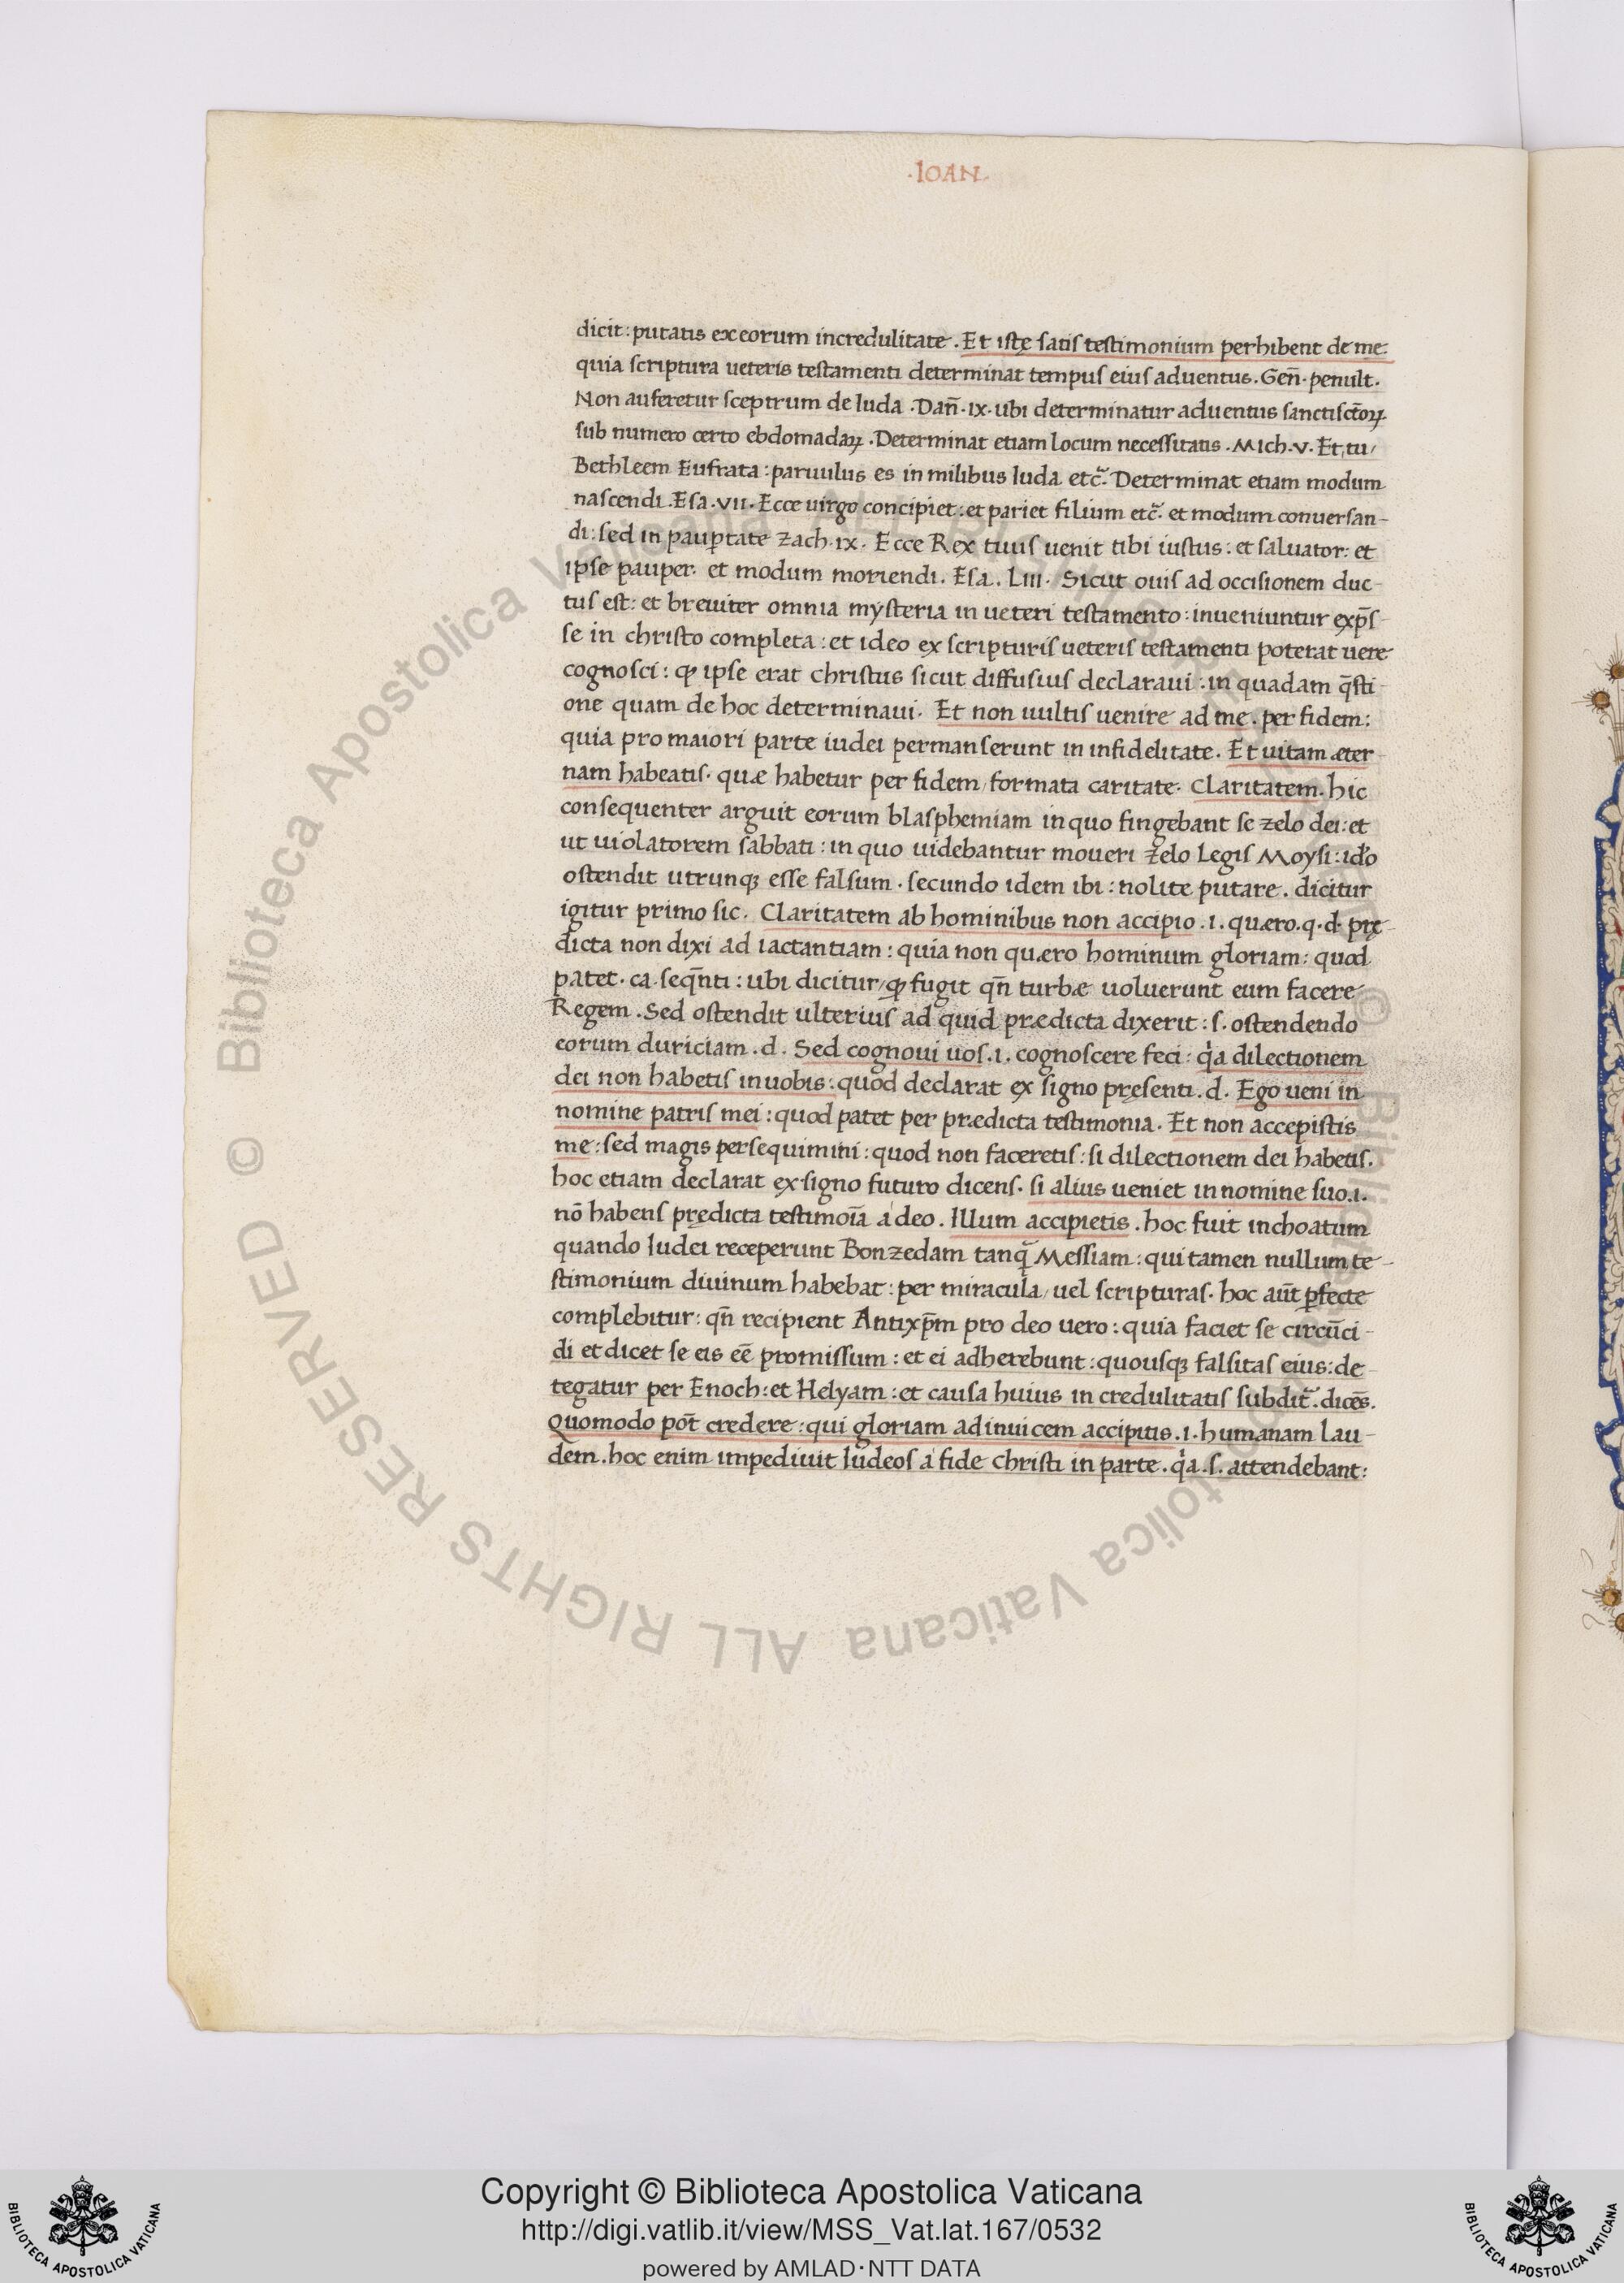 ·IOAN·
dicit: putatis ex eorum incredulitate. Et istę satis testimonium perhibent de me:
quia scriptura ueteris testamenti determinat tempus eius aduentus. Gen̄. penult.
Non auferetur sceptrum de Iuda. Dan̄. ix. ubi determinatur aduentus sanctisctoꝝ
sub numero certo ebdomadaꝝ. Determinat etiam locum necessitatis. Mich. v. Et tu/
Bethleem Eufrata: paruulus es in milibus Iuda etc̄. Determinat etiam modum
nascendi. Esa. vii. Ecce uirgo concipiet: et pariet filium etc̄. et modum conuersan-
di: sed in paup̱tate Zach. ix. Ecce Rex tuus uenit tibi iustus: et saluator: et
ipse pauper. et modum moriendi. Esa. Liii. Sicut ouis ad occisionem duc-
tus est: et breuiter omnia mysteria in ueteri testamento: inueniuntur exp̄s-
se in christo completa: et ideo ex scripturis ueteris testamenti poterat uere
cognosci: ꝙ ipse erat christus sicut diffusius declaraui: in quadam q̄sti-
one quam de hoc determinaui. Et non uultis uenire ad me. per fidem:
quia pro maiori parte iudei permanserunt in infidelitate. Et uitam æter-
nam habeatis. quæ habetur per fidem/ formata caritate. Claritatem. hic
consequenter arguit eorum blasphemiam in quo fingebant se zelo dei: et
ut uiolatorem sabbati: in quo uidebantur moueri zelo Legis Moysi: ido̓
ostendit utrunqꝫ esse falsum. secundo idem ibi: nolite putare. dicitur
igitur primo sic. Claritatem ab hominibus non accipio. i. quæro. q. d. prę-
dicta non dixi ad iactantiam: quia non quæro hominum gloriam: quod
patet. ca. seq̄nti: ubi dicitur/ ꝙ fugit qn̄ turbæ uoluerunt eum facere
Regem. Sed ostendit ulterius ad quid prædicta dixerit: s. ostendendo
eorum duriciam. d. Sed cognoui uos. i. cognoscere feci: qͥa dilectionem
dei non habetis in uobis: quod declarat ex signo pręsenti. d. Ego ueni in
nomine patris mei: quod patet per prædicta testimonia. Et non accepistis
me: sed magis persequimini: quod non faceretis: si dilectionem dei habetis.
hoc etiam declarat ex signo futuro dicens. si alius ueniet in nomine suo. i.
nō habens prędicta testimoīa a deo. Illum accipietis. hoc fuit inchoatum
quando Iudei receperunt Bonzedam tanq̄ Messiam: qui tamen nullum te-
stimonium diuinum habebat: per miracula/ uel scripturas. hoc aūt ꝑfecte
complebitur: qn̄ recipient Antixp̄m pro deo uero: quia faciet se circūci-
di et dicet se eis eē promissum: et ei adherebunt: quousqꝫ falsitas eius: de-
tegatur per Enoch: et Helyam: et causa huius in credulitatis subdit̄. dicēs.
Quomodo pōt credere: qui gloriam adinuicem accipitis. i. humanam lau-
dem. hoc enim impediuit Iudeos a fide christi in parte. qͥa. s. attendebant:
© Biblioteca Apostolica Vaticana ALL RIGHTS RESERVED
Copyright © Biblioteca Apostolica Vaticana
http://digi.vatlib.it/view/MSS_Vat.lat.167/0532
powered by AMLAD·NTT DATA
BIBLIOTECA APOSTOLICA VATICANA
BIBLIOTECA APOSTOLICA VATICANA